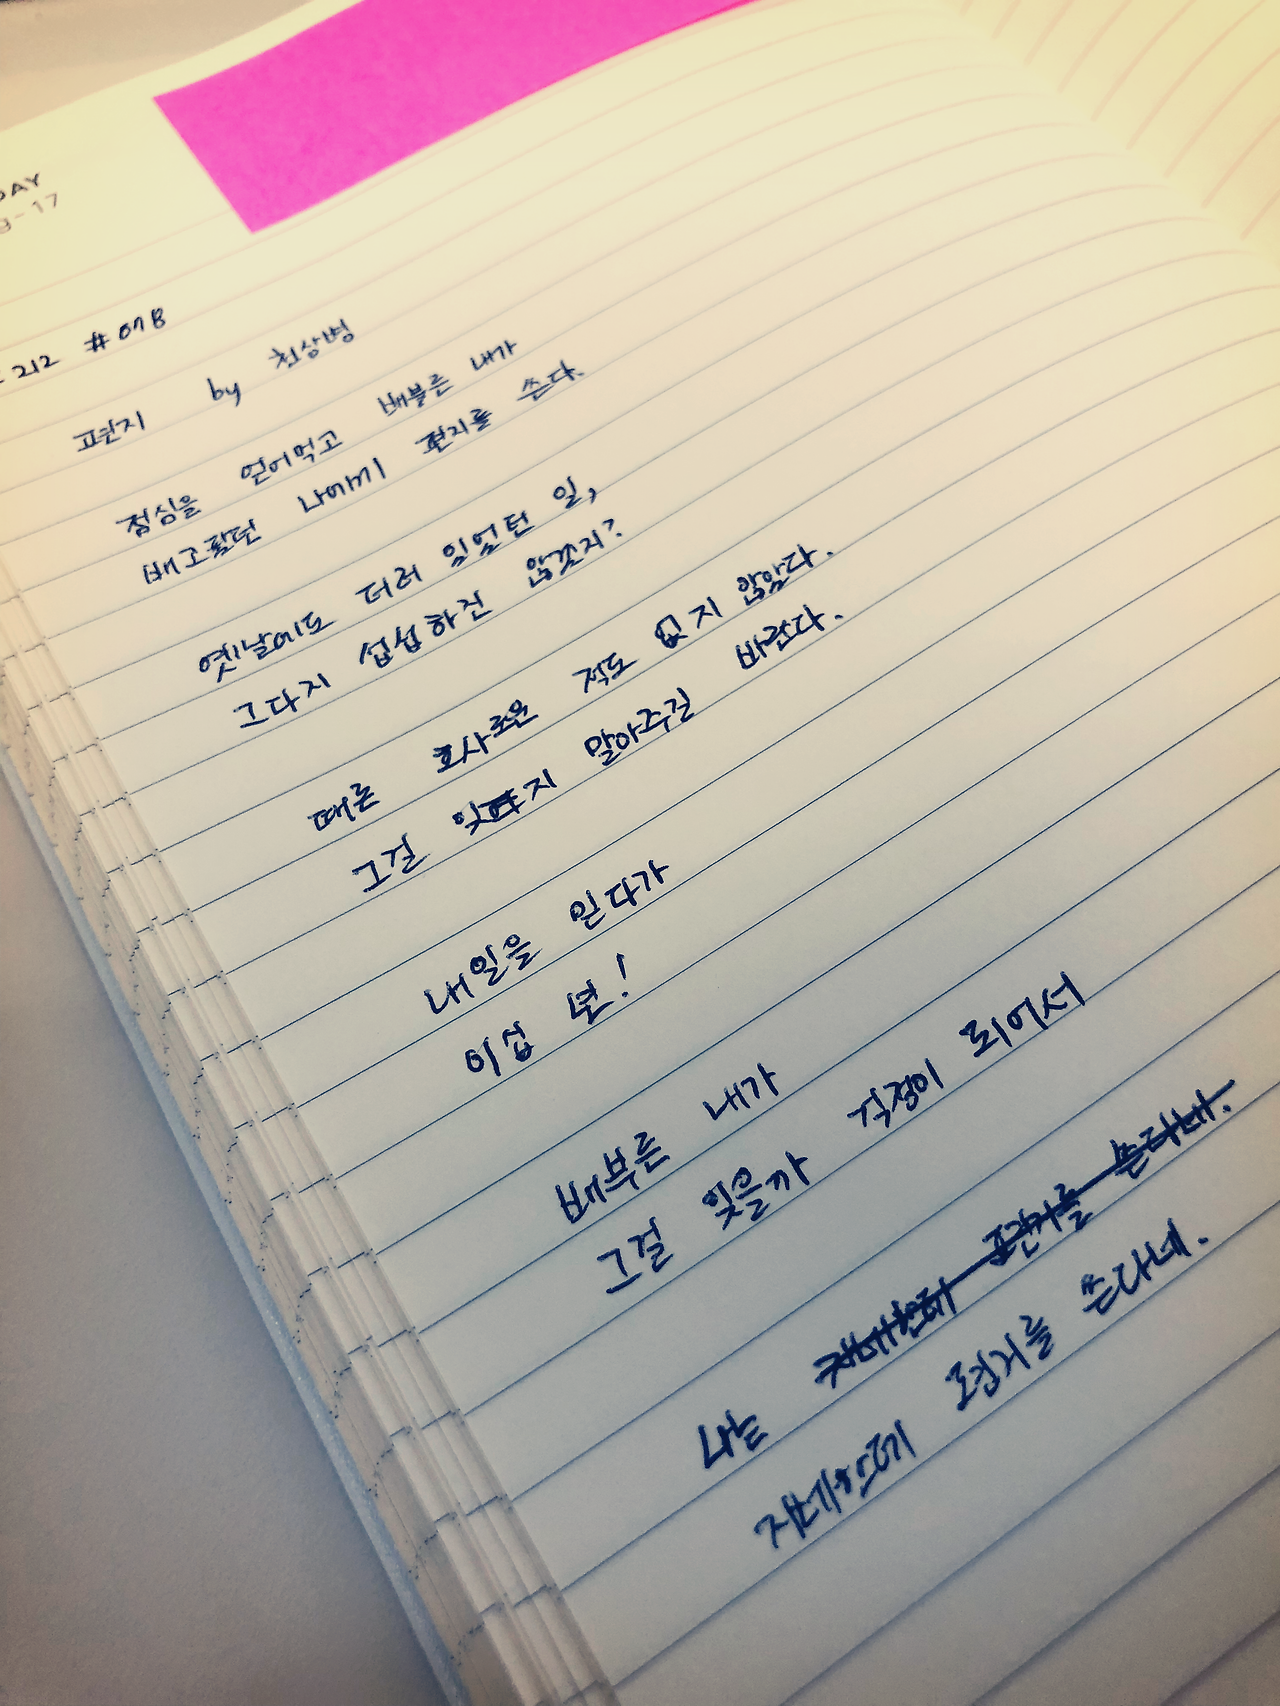 DAY
-17
212 #078
편지 by 천상병
점심을 얻어먹고 배부른 내가
배고팠던 나에게 편지를 쓴다.
옛날에도 더러 있었던 일,
그다지 섭섭하진 않겠지?
때론 호사로운 적도 없지 않았다.
그걸 잊지 말아주길 바란다.
내일을 믿다가
이십 년!
배부른 내가
그걸 잊을까 걱정이 되어서
나는 자네한테 편지를 쓴다네.
자네한테 편지를 쓴다네.